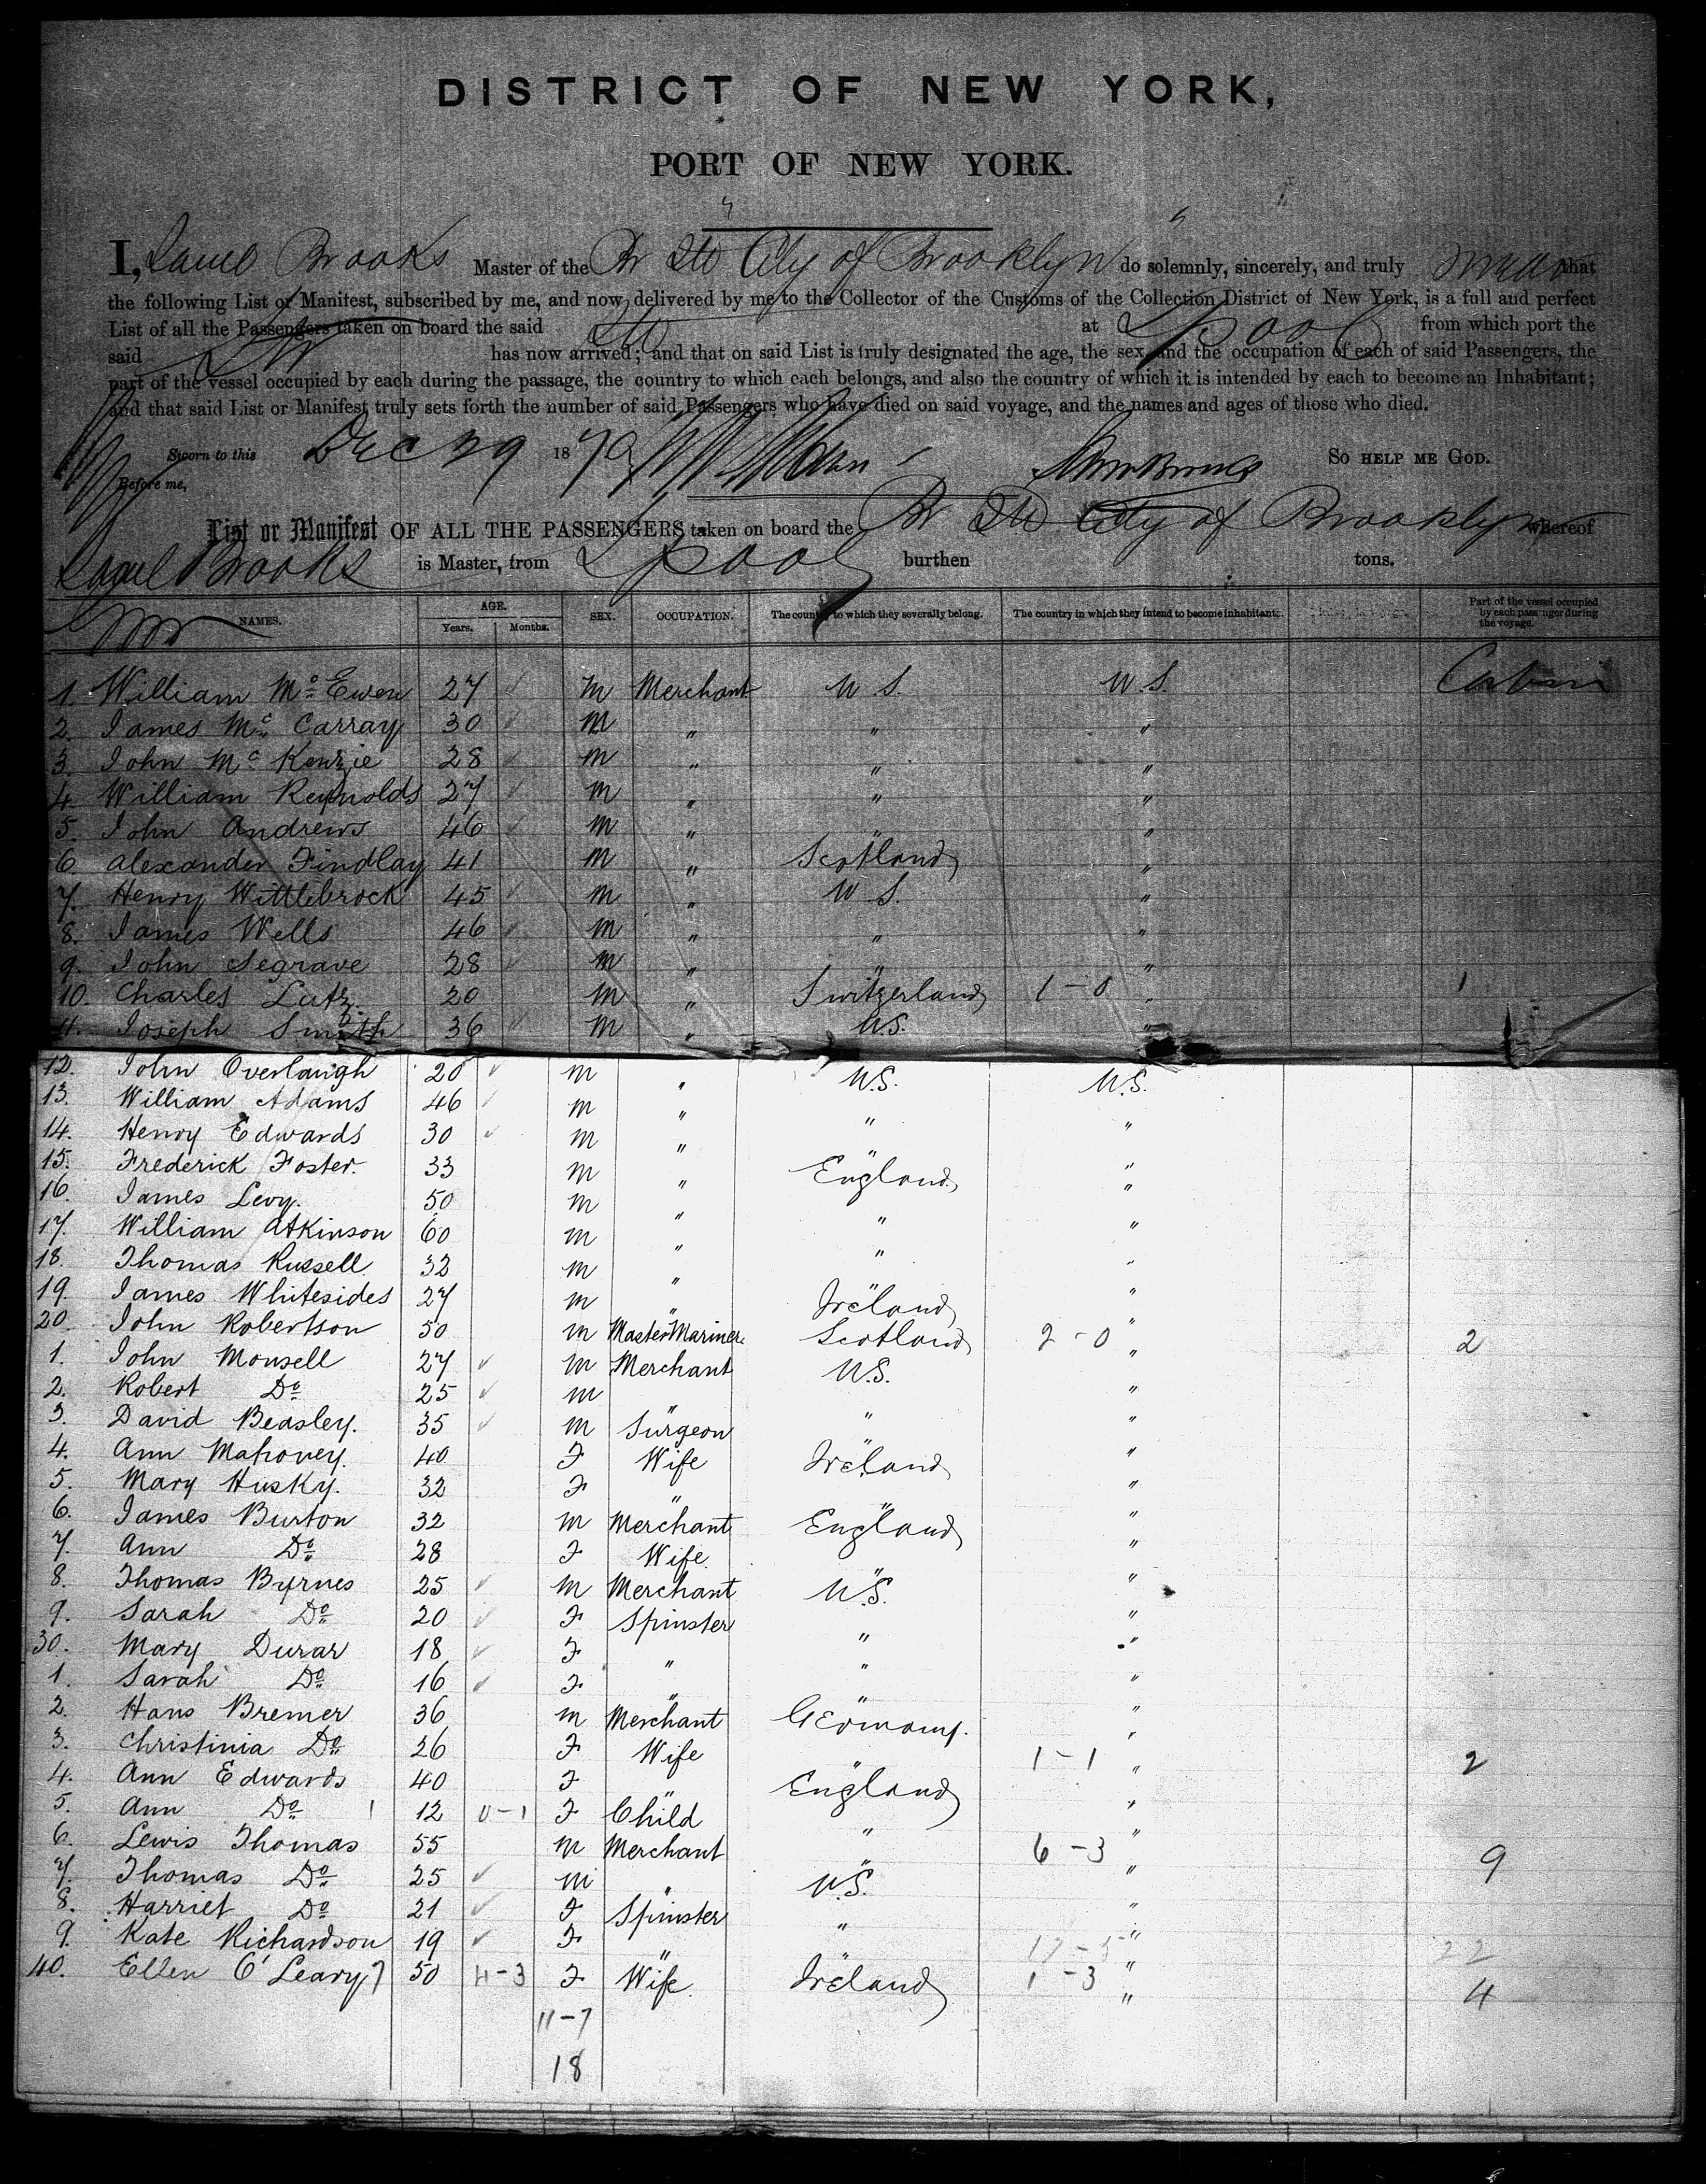 DISTRICT OF NEW YORK,
PORT OF NEW YORK.
I, Saml Brooks Master of the Br Str City of Brooklyn do solemnly, sincerely, and truly swear that
the following List or Manifest, subscribed by me, and now delivered by me to the Collector of the Customs of the Collection District of New York, is a full and perfect
List of all the Passengers taken on board the said Str at Lpool from which port the
said Str has now arrived; and that on said List is truly designated the age, the sex, and the occupation of each of said Passengers, the
part of the vessel occupied by each during the passage, the country to which each belongs, and also the country of which it is intended by each to become an Inhabitant;
and that said List or Manifest truly sets forth the number of said Passengers who have died on said voyage, and the names and ages of those who died.
Sworn to this Dec 29 1870 Saml Brooks SO HELP ME GOD.
Before me,
List or Manifest OF ALL THE PASSENGERS taken on board the Br Str City of Brooklyn whereof
Saml Brooks is Master, from Lpool burthen tons.
NAMES. AGE. Years. Months. SEX. OCCUPATION. The country to which they severally belong. The country in which they intend to become inhabitants. Part of the vessel occupied by each passenger during the voyage.
1. William Mc Ewen 27 ✓ M Merchant U S. U S. Cabin
2. James Mc Carray 30 ✓ M " " "
3. John Mc Kenzie 28 ✓ M " " "
4. William Reynolds 27 ✓ M " " "
5. John Andrews 46 ✓ M " " "
6. Alexander Findlay 41 M " Scotland "
7. Henry Wittlebrock 45 ✓ M " U S. "
8. James Wells 46 ✓ M " " "
9. John Segrave 28 ✓ M " " "
10. Charles Lutz. 20 M " Switzerland 1-0 " 1
11. Joseph Smith 36 ✓ M " U.S. "
12. John Overlaugh 20 ✓ M " U.S. U.S.
13. William Adams 46 ✓ M " " "
14. Henry Edwards 30 ✓ M " " "
15. Frederick Foster. 33 M " England "
16. James Levy. 50 M " " "
17. William Atkinson 60 M " " "
18. Thomas Russell 32 M " " "
19. James Whitesides 27 M " Ireland "
20. John Robertson 50 M Master Mariner. Scotland 2-0 " 2
1. John Monsell 27 ✓ M Merchant U.S. "
2. Robert Do 25 ✓ M " " "
3. David Beasley. 35 ✓ M Surgeon " "
4. Ann Mahoney. 40 F Wife Ireland "
5. Mary Husky. 32 F " " "
6. James Burton 32 M Merchant England "
7. Ann Do 28 F Wife. " "
8. Thomas Byrnes 25 ✓ M Merchant U.S. "
9. Sarah Do 20 ✓ F Spinster " "
30. Mary Durar 18 ✓ F " " "
1. Sarah Do 16 ✓ F " " "
2. Hans Bremer 36 M Merchant Germany. "
3. Christinia Do 26 F Wife " 1-1 " 2
4. Ann Edwards 40 F " England "
5. Ann Do 1 12 0-1 F Child " "
6. Lewis Thomas 55 M Merchant " 6-3 " 9
7. Thomas Do 25 ✓ M " U.S. "
8. Harriet Do 21 ✓ F Spinster " "
9. Kate Richardson 19 ✓ F " " 17-5 " 22
40. Ellen O'Leary 7 50 4-3 F Wife. Ireland 1-3 " 4
11-7
18